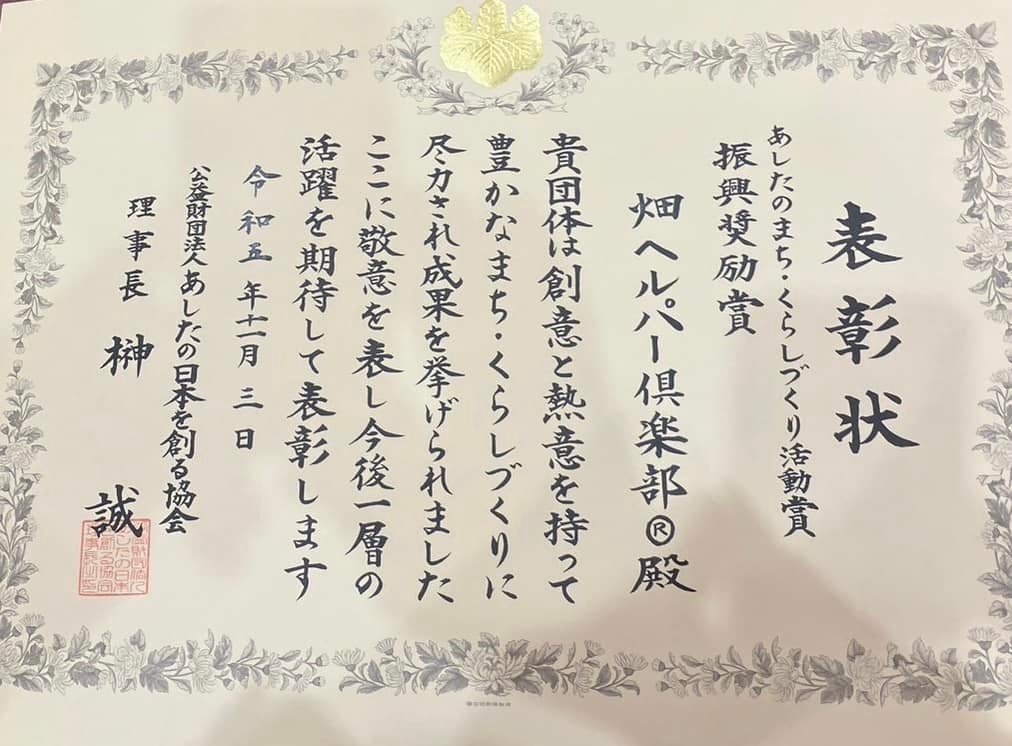 表彰状
あしたのまち・くらしづくり活動賞
振興奨励賞
畑ヘルパー倶楽部®殿
貴団体は創意と熱意を持って
豊かなまち・くらしづくりに
尽力され成果を挙げられました
ここに敬意を表し今後一層の
活躍を期待して表彰します
令和五年十一月三日
公益財団法人あしたの日本を創る協会
理事長 榊 誠